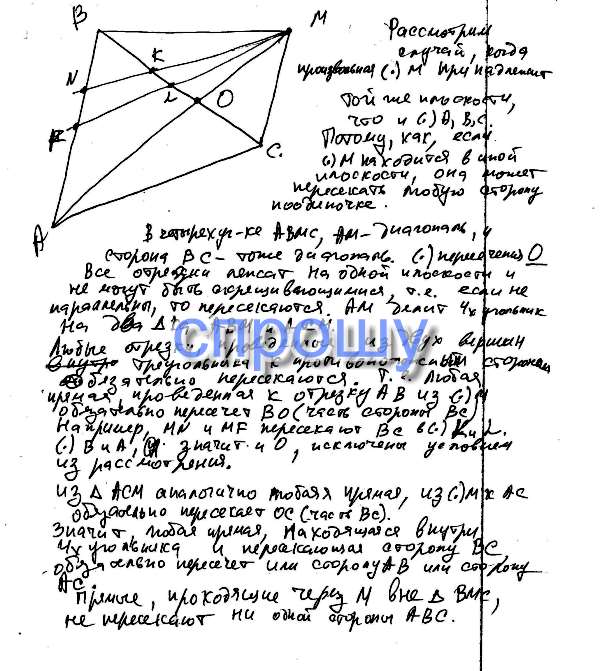 B
M
Рассмотрим
случай, когда
произвольная (.) M принадлежит
той же плоскости,
что и (.) A, B, C.
Потому, как, если
(.) M находится в иной
плоскости, она может
пересекать любую сторону
поодиночке.
N
K
L
O
F
C
A
В четырехуг-ке ABMC, AM - диагональ, и
сторона BC - тоже диагональ. (.) пересечения O
Все отрезки лежат на одной плоскости и
не могут быть скрещивающимися, т.е. если не
параллельны, то пересекаются. AM делит 4х угольник
на два Δ
спрошу
Любые отрезки из двух вершин
треугольника к противоположным сторонам
обязательно пересекаются. Т. любая
прямая, проведенная к отрезку AB из (.) M
обязательно пересечет BO (часть стороны BC)
Например, MN и MF пересекают BC в (.) K и L.
(.) B и A, значит и O, исключены условием
из рассмотрения.
Из Δ ACM аналогично любая прямая, из (.) M к AC
обязательно пересекает OC (часть BC).
Значит, любая прямая, находящаяся внутри
4х угольника и пересекающая сторону BC,
обязательно пересечет или сторону AB или сторону
AC.
Прямые, проходящие через M вне Δ BMC,
не пересекают ни одной стороны ABC.